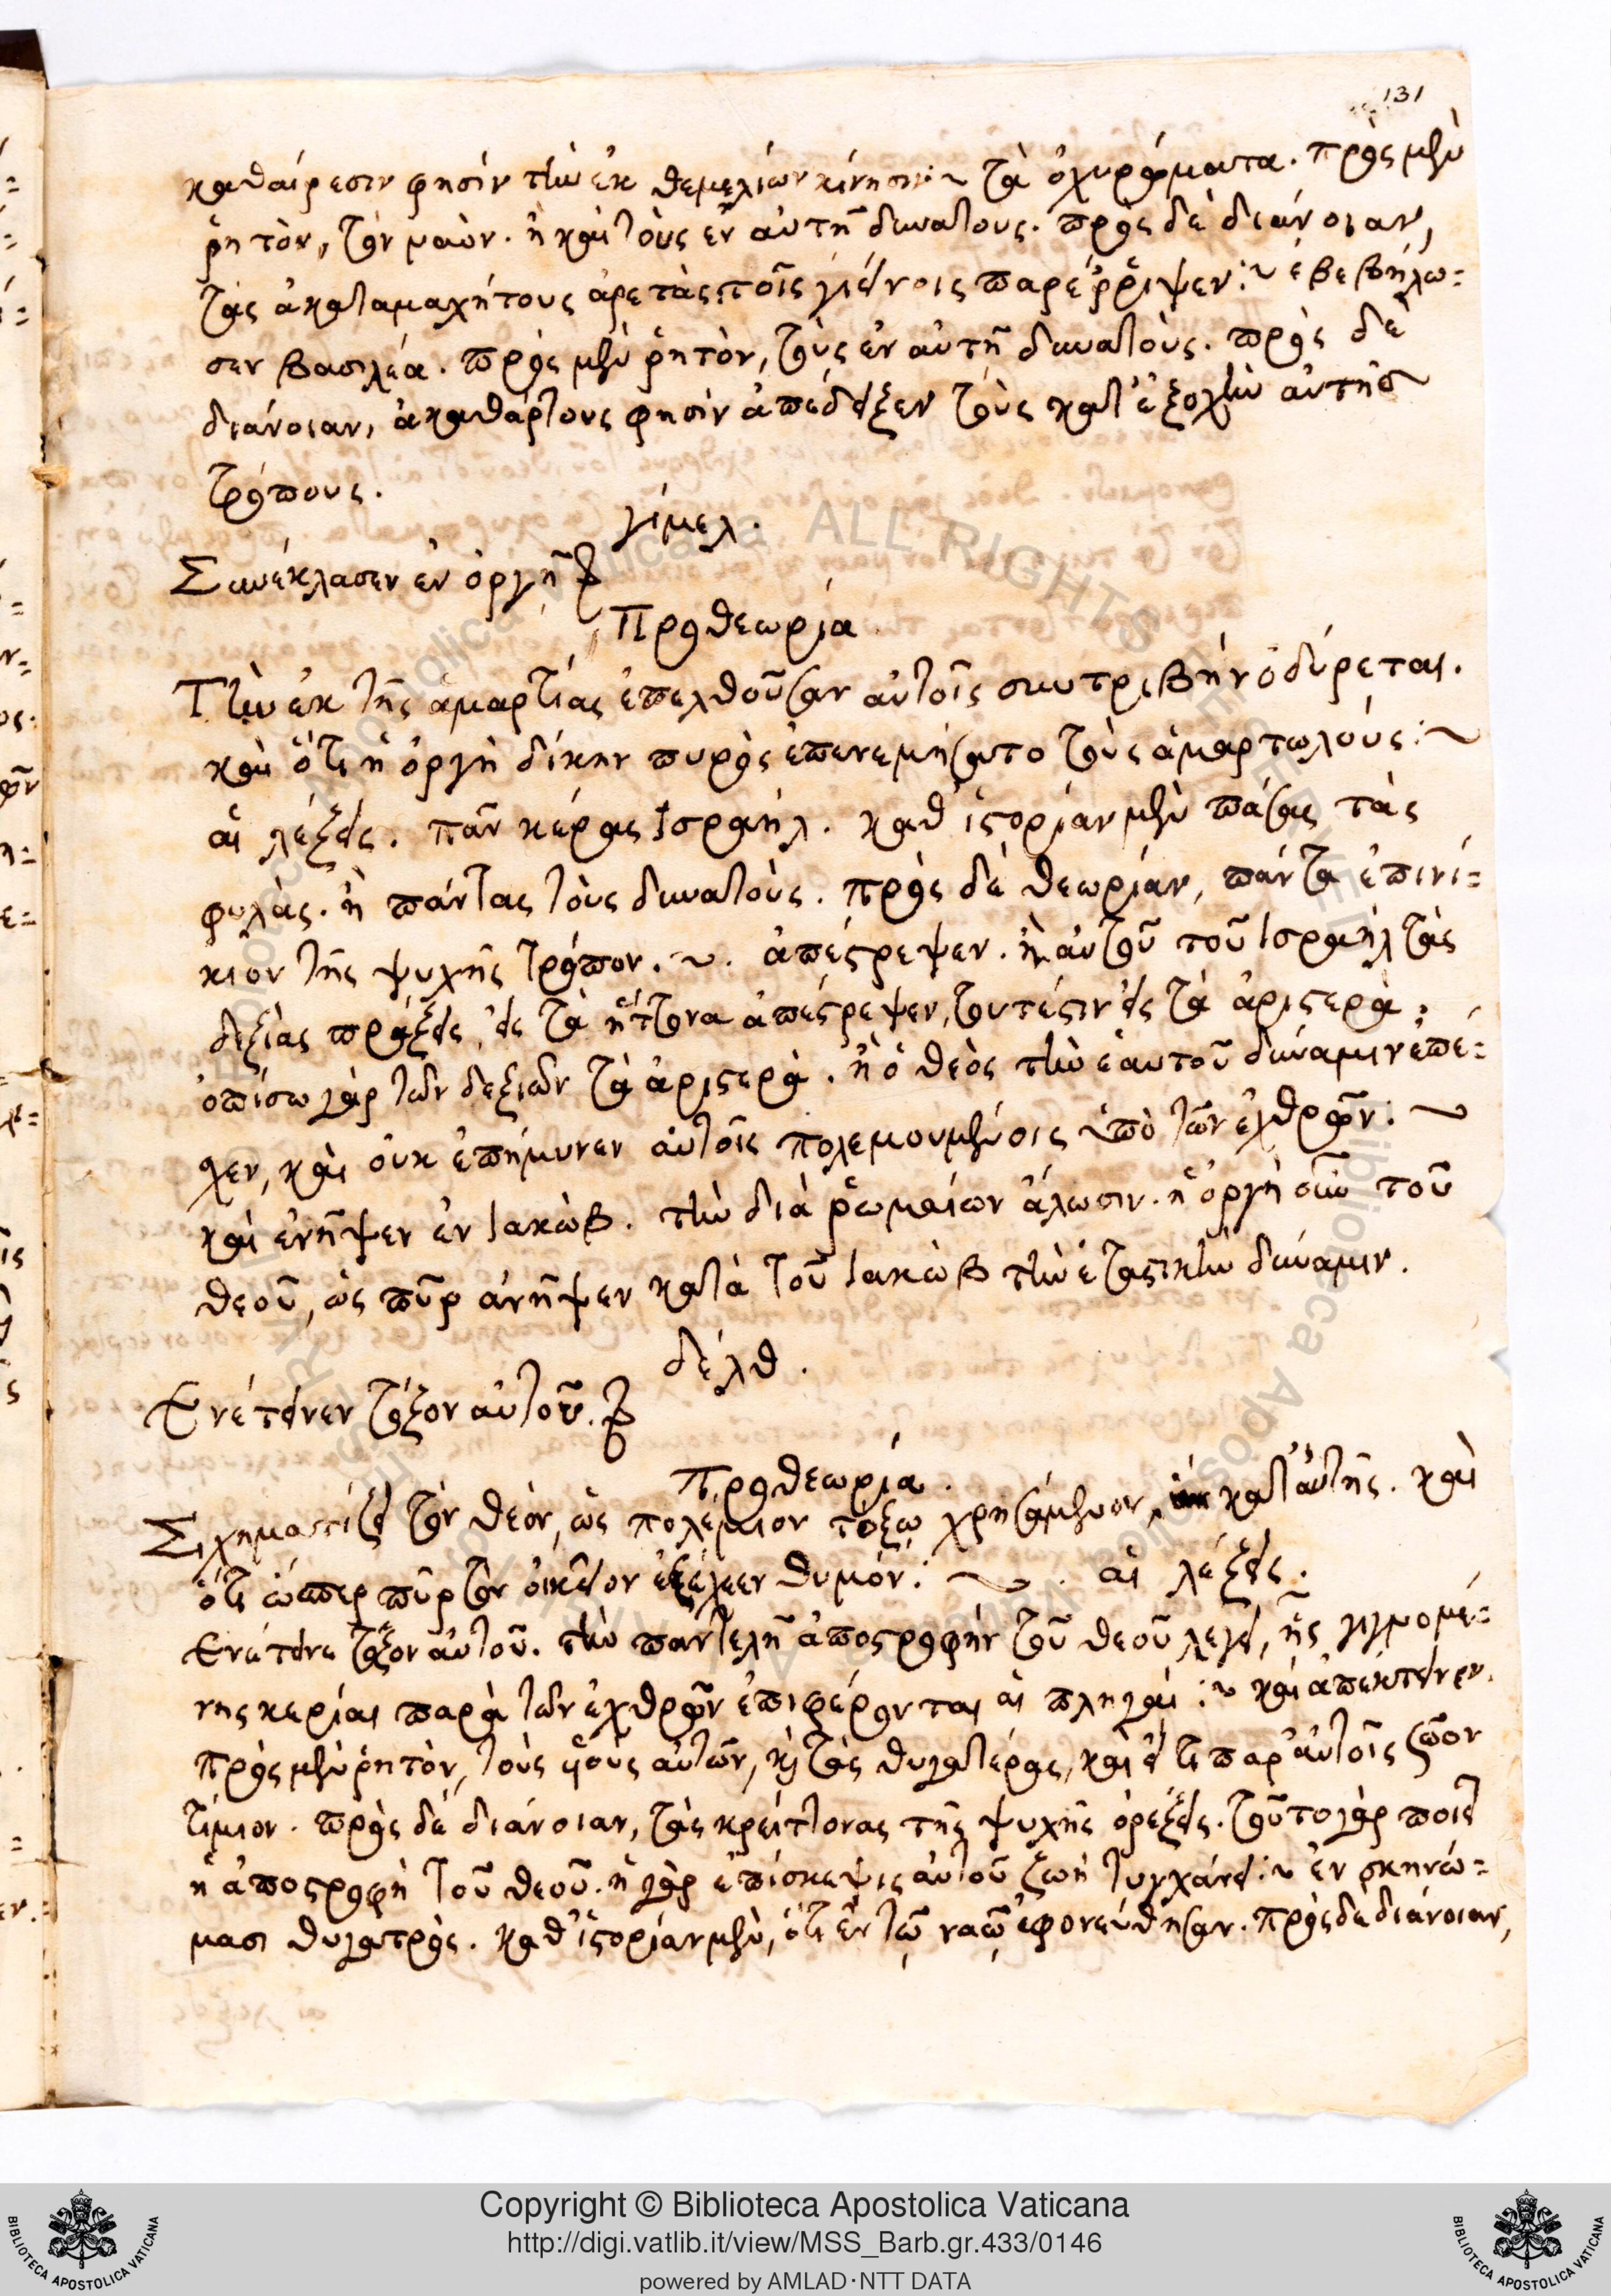 131
καθαίρεσιν φησὶν τὴν ἐκ θεμελίων κίνησιν:~ τὰ ὀχυρώματα. πρὸς μὲν
ῥητὸν, τὸν ναὸν. ἢ καὶ τοὺς ἐν αὐτῇ δυνατους. πρὸς δὲ διάνοιαν,
τὰς ἀκαταμαχήτους ἀρετὰς τοῖς γιείνοις παρέῤῥιψεν:~ ἐβεβήλω=
σεν βασιλέα. πρὸς μὲν ῥητὸν, τοὺς ἐν αὐτῇ δυνατοὺς. πρὸς δὲ
διάνοιαν, ἀκαθάρτους φησὶν ἀπέδειξεν τοὺς κατ' ἐξοχὴν αὐτῆς
τρόπους.
γίμελ.
Συνέκλασεν ἐν ὀργῇ
Προθεωρία
Τὴν ἐκ τῆς ἁμαρτίας ἐπελθοῦσαν αὐτοῖς συντριβὴν ὀδύρεται.
καὶ ὅτι ἡ ὀργὴ δίκην πυρὸς ἐπενεμήσατο τοὺς ἁμαρτωλούς:~
αἱ λέξεις. πᾶν κέρας Ἰσραήλ. καθ' ἱστορίαν μὲν πάσας τὰς
φυλὰς. ἢ πάντας τοὺς δυνατοὺς. πρὸς δὲ θεωρίαν, πάντα ἐπινί=
κιον τῆς ψυχῆς τρόπον.~. ἀπέστρεψεν. ἢ αὐτοῦ τοῦ Ἰσραὴλ τὰς
δεξιὰς πράξεις, εἰς τὰ ἥττονα ἀπέστρεψεν, τουτέστιν εἰς τὰ ἀριστερὰ:
ὀπίσω γὰρ τῶν δεξιῶν τὰ ἀριστερὰ. ἢ ὁ θεὸς τὴν ἑαυτοῦ δύναμιν ἐπέ=
χεν, καὶ οὐκ ἐπήμυνεν αὐτοῖς πολεμουμένοις ὑπὸ τῶν ἐχθρῶν:~
καὶ ἀνῆψεν ἐν Ἰακὼβ. τὴν διὰ ῥωμαίων ἅλωσιν. ἡ ὀργὴ οὖν τοῦ
θεοῦ, ὡς πῦρ ἀνῆψεν κατὰ τοῦ Ἰακὼβ τὴν ἐταστικὴν δύναμιν.
δέλθ.
Ἐνέτεινεν τόξον αὐτοῦ.
Προθεωρία.
Σχηματίζει τὸν θεὸν, ὡς πολέμιον τόξω χρησάμενον, κατ' αὐτῆς. καὶ
ὅτι ὥσπερ πῦρ τὸν οἰκεῖον ἐξέχεεν θυμόν:~. αἱ λέξεις.
Ἐνέτεινε τόξον αὐτοῦ. τὴν παντελῆ ἀποστροφὴν τοῦ θεοῦ λέγει, ἧς γιγνομέ=
νης κερίαι παρὰ τῶν ἐχθρῶν ἐπιφέρονται αἱ πληγαί:~ καὶ ἀπέκτεινεν.
πρὸς μὲν ῥητὸν, τοὺς υἱοὺς αὐτῶν, καὶ τὰς θυγατέρας, καὶ εἴ τι παρ' αὐτοῖς ζῶον
τίμιον. πρὸς δὲ διάνοιαν, τὰς κρείττονας τῆς ψυχῆς ὀρέξεις. τοῦτο γὰρ ποιεῖ
ἡ ἀποστροφὴ τοῦ θεοῦ. ἡ γὰρ ἐπίσκεψις αὐτοῦ ζωὴ τυγχάνει:~ ἐν σκηνώ=
μασι θυγατρὸς. καθ' ἱστορίαν μὲν, ὅτι ἐν τῷ ναῷ ἐφονεύθησαν. πρὸς δὲ διάνοιαν,
Copyright © Biblioteca Apostolica Vaticana
http://digi.vatlib.it/view/MSS_Barb.gr.433/0146
powered by AMLAD·NTT DATA